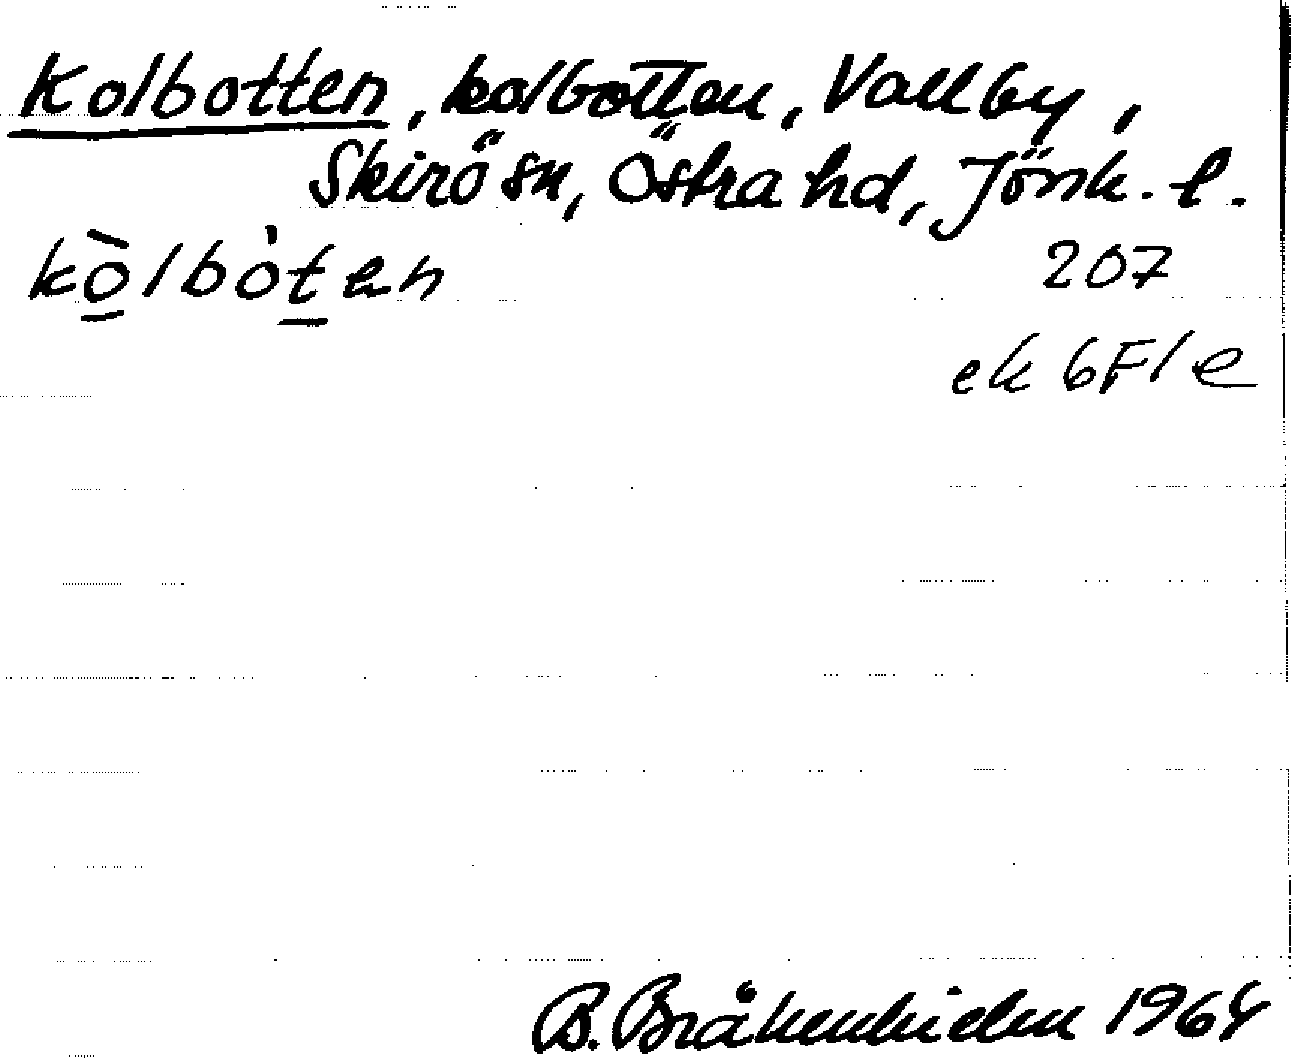 Kolbotten, kolbotten, Vallby,
Skirö sn, Östra hd, Jönk. l.
kòlbòten 207
ek 6F1e
B. Bråkenhielm 1964